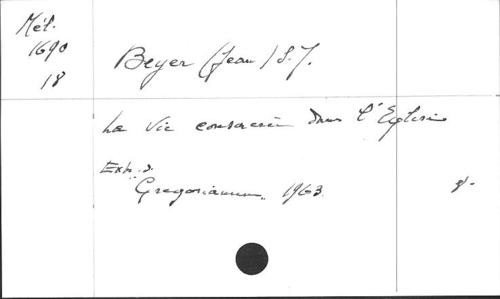 Mél.
1690
18
Beyer (Jean) S.J.
La vie consacrée dans l'Eglise
Extr. d.
Gregorianum, 1963.